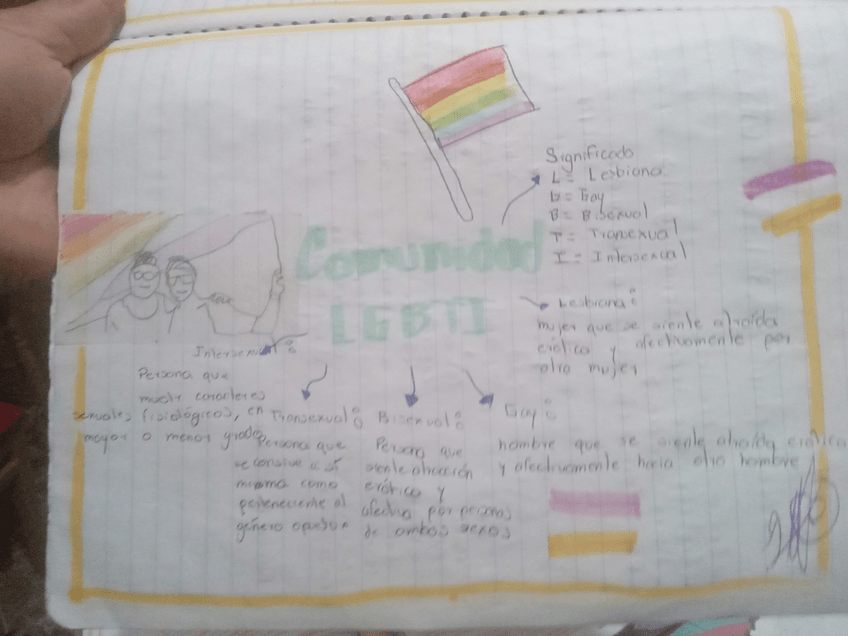 Comunidad
LGBTI
Significado
L= Lesbiana
G= Gay
B= Bisexual
T= Transexual
I= Intersexual
Lesbiana:
mujer que se siente atraída
erótica y afectivamente por
otra mujer
Gay:
hombre que se siente atraída erótica
y afectivamente hacia otro hombre
Bisexual:
Persona que
siente atracción
erótica y
afectiva por personas
de ambos sexos
Transexual:
Persona que
se concive a sí
misma como
perteneciente al
género opuesto
Intersexual:
Persona que
caracteres
sexuales fisiológicos, en
mayor o menor grado